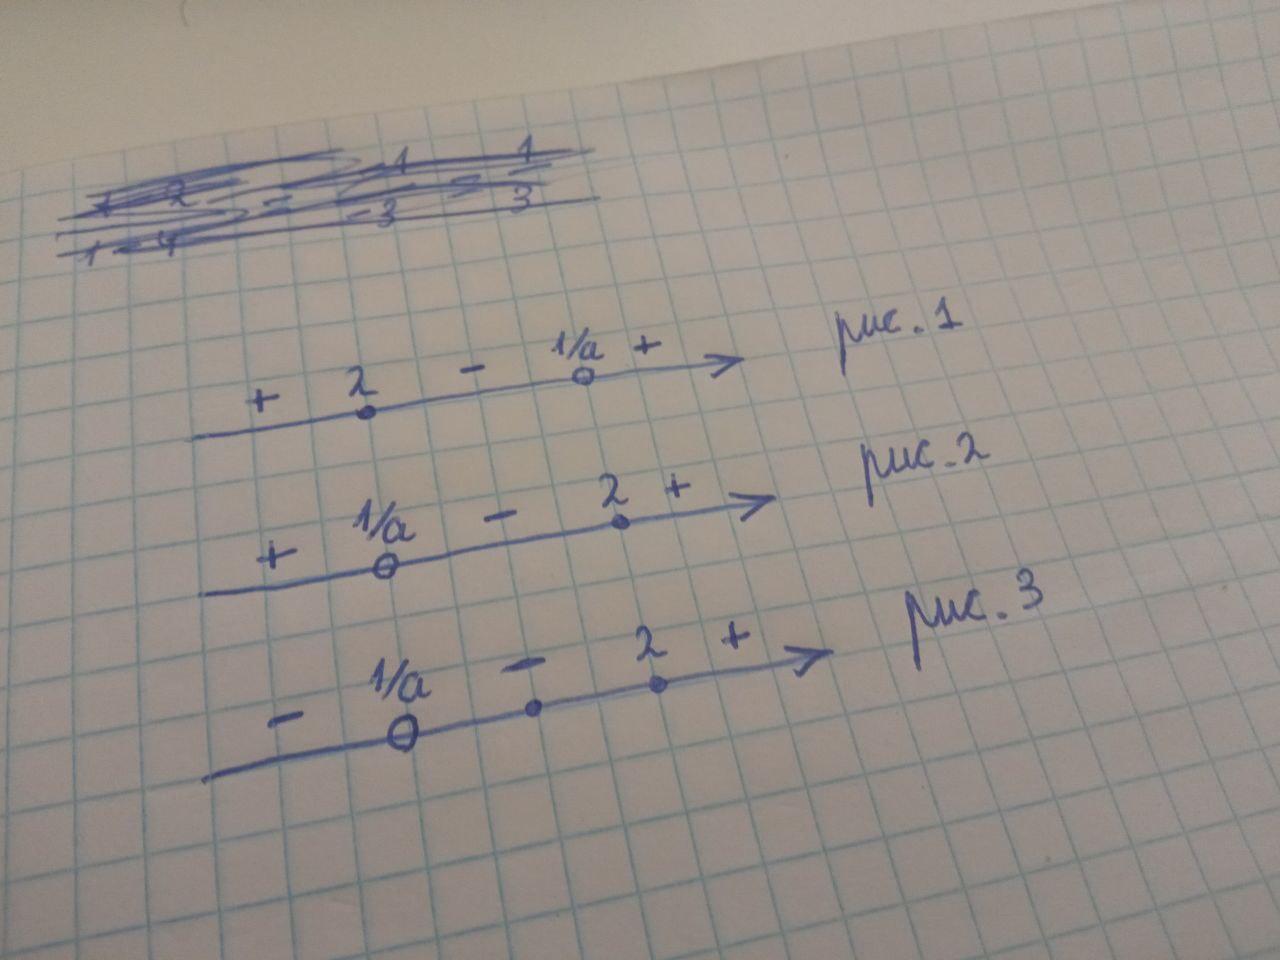 + 2 - 1/a + рис. 1
+ 1/a - 2 + рис. 2
- 1/a - 2 + рис. 3